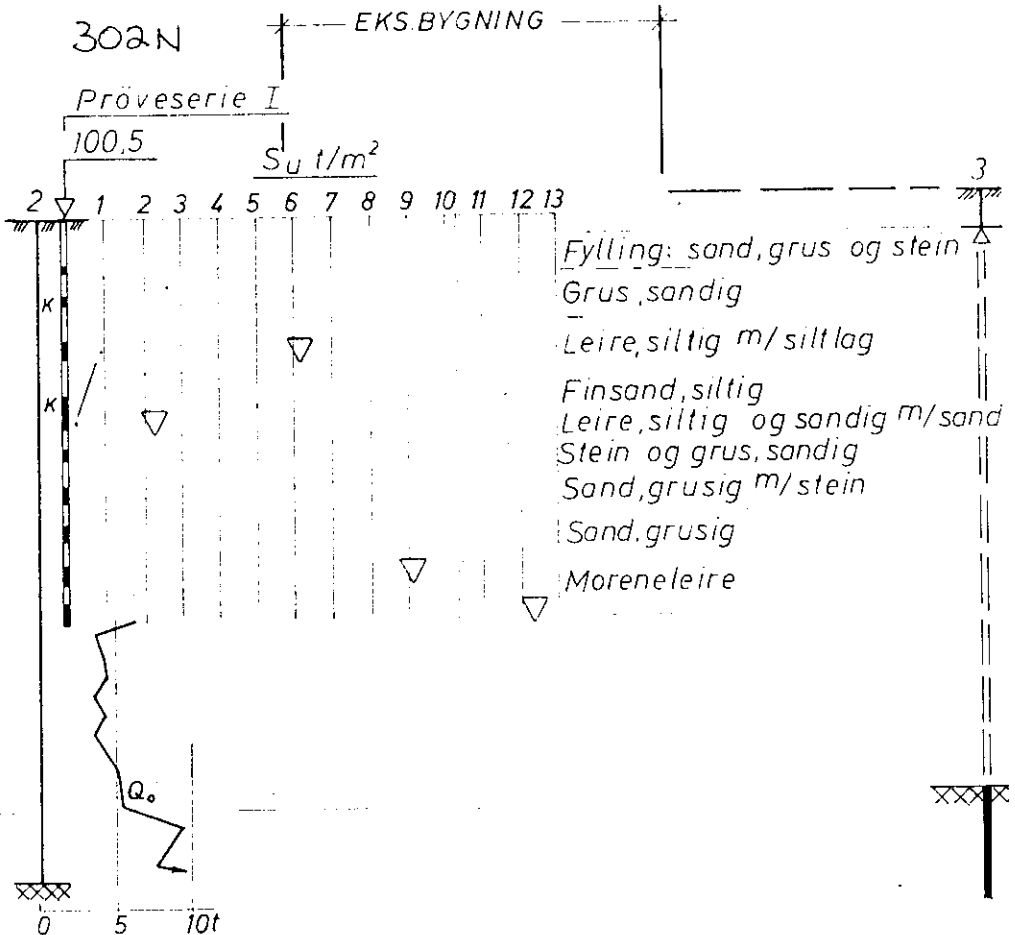 302N
EKS.BYGNING
Pröveserie I
100,5
Su t/m²
2 1 2 3 4 5 6 7 8 9 10 11 12 13
3
Fylling: sand, grus og stein
Grus, sandig
K
Leire, siltig m/siltlag
Finsand, siltig
K
Leire, siltig og sandig m/sand
Stein og grus, sandig
Sand, grusig m/stein
Sand, grusig
Moreneleire
Qo
0 5 10t